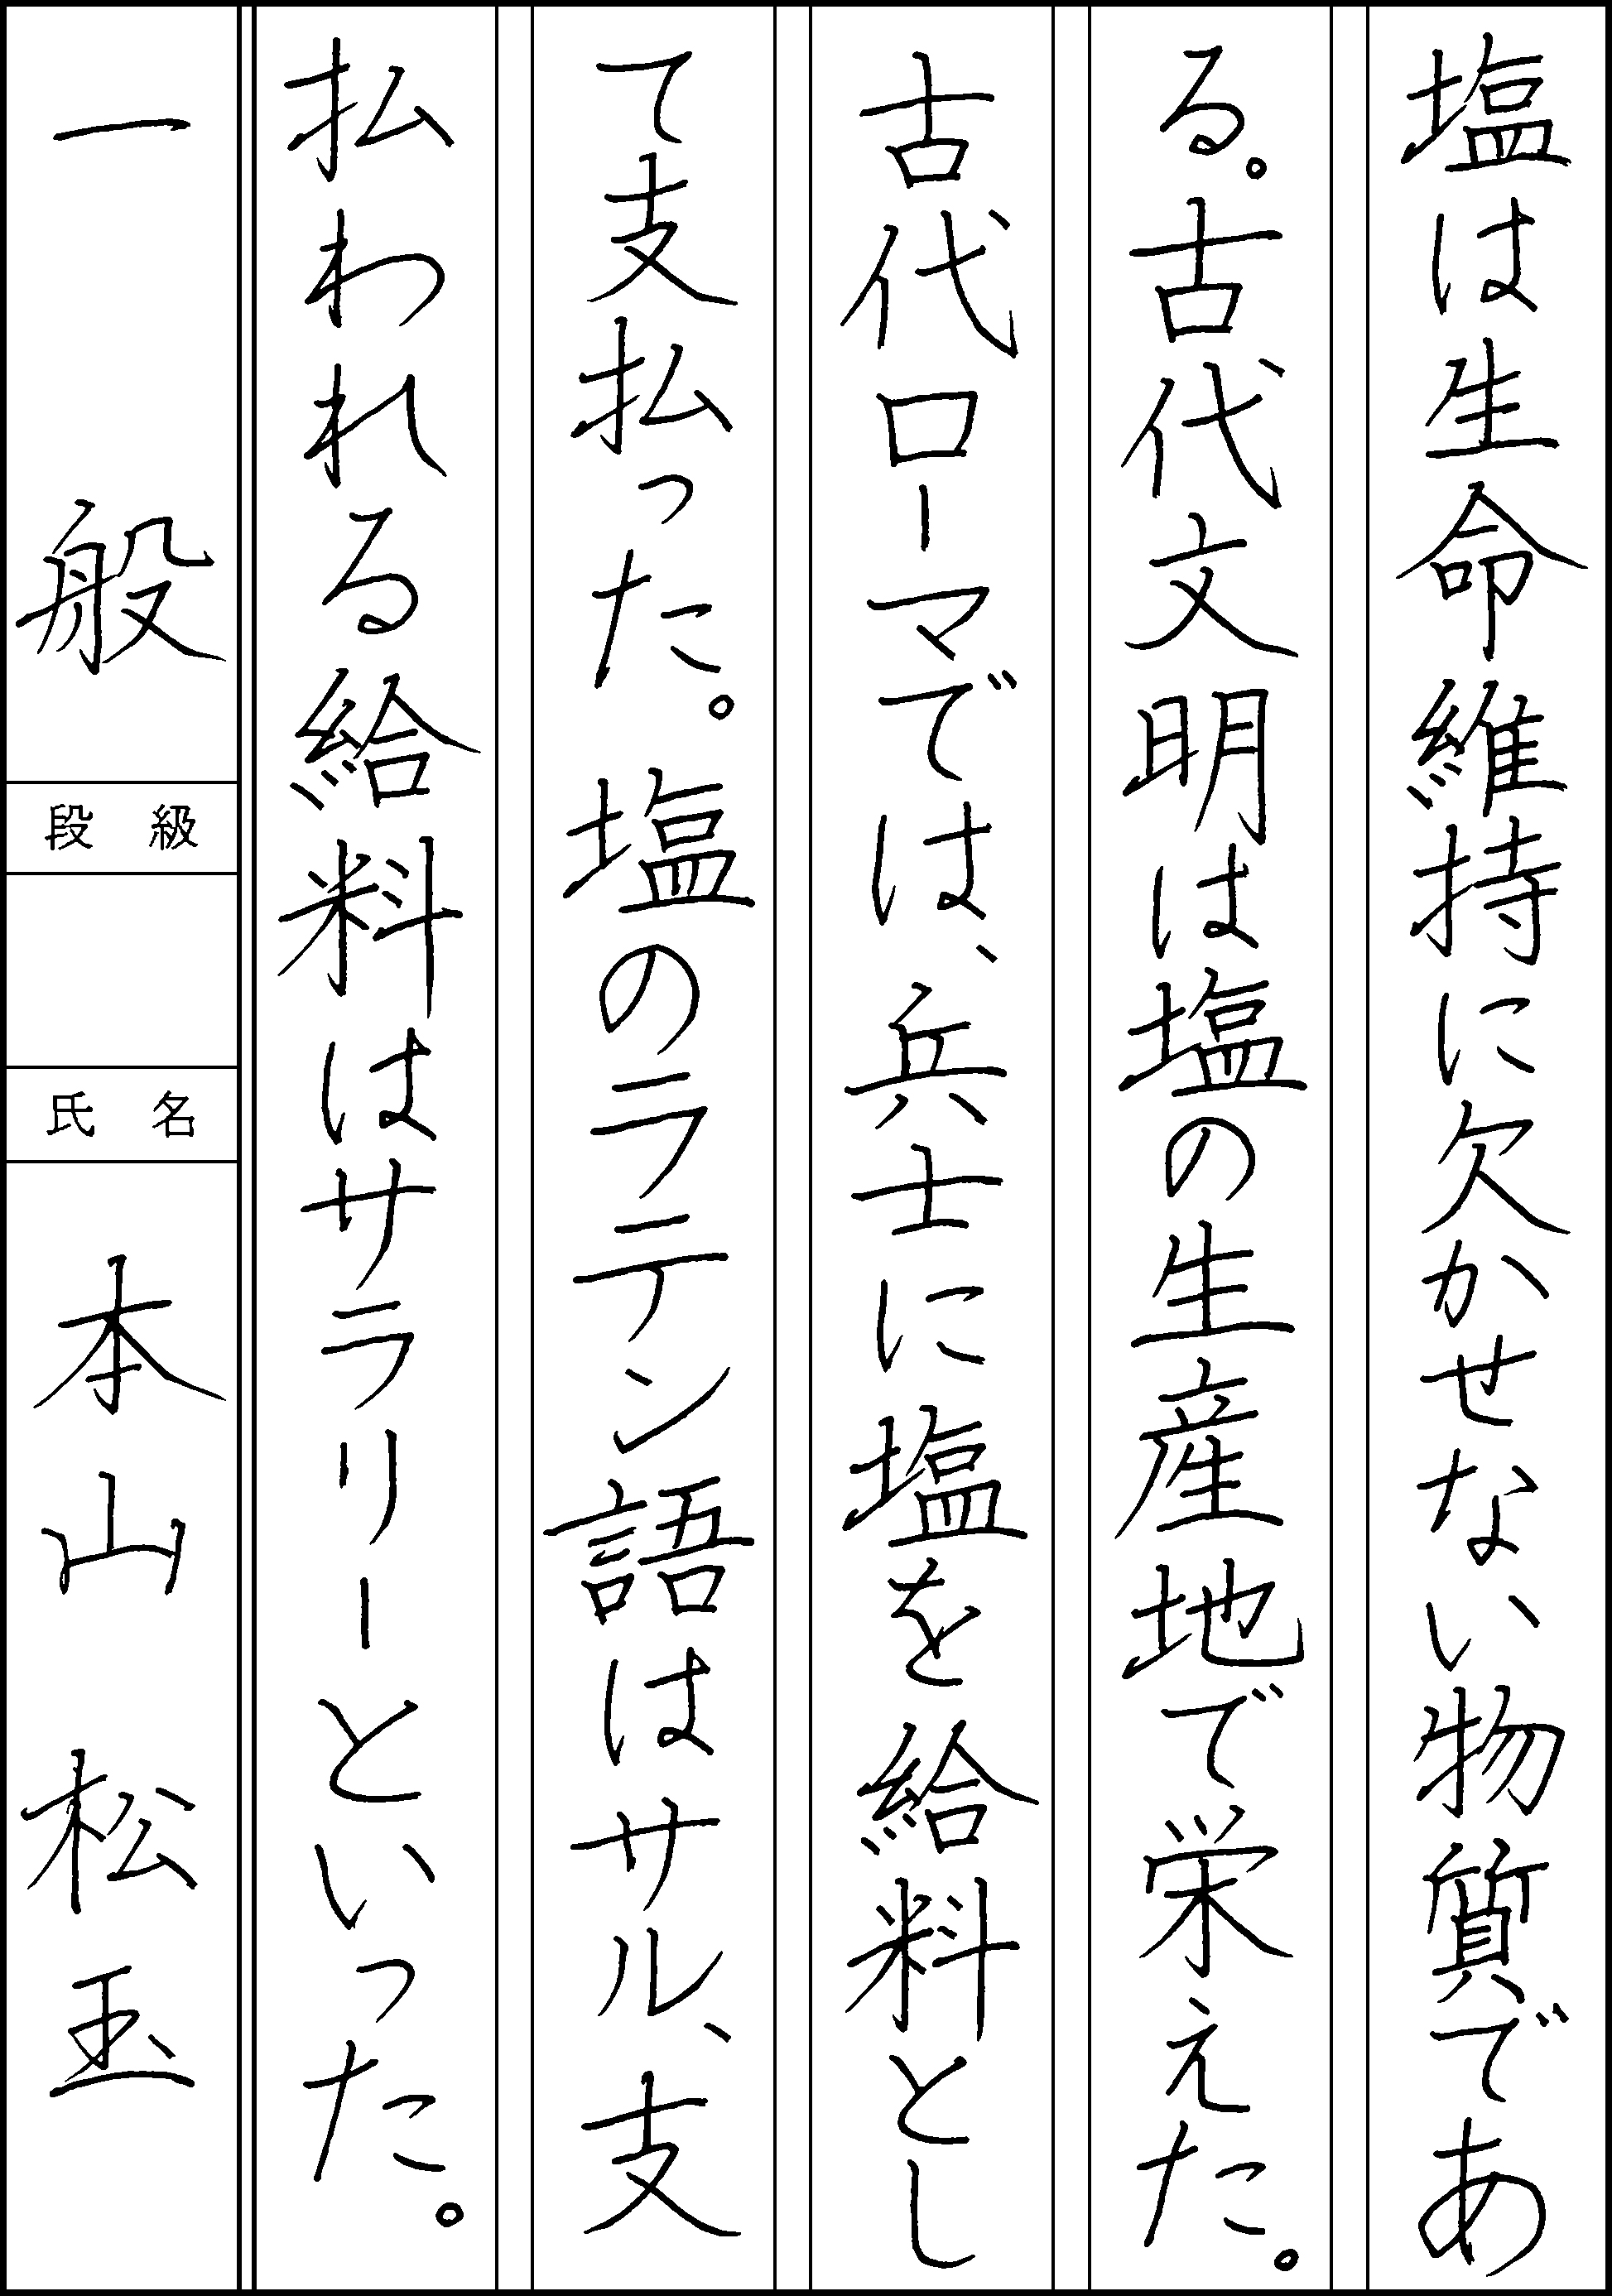 塩は生命維持に欠かせない物質であ
る。古代文明は塩の生産地で栄えた。
古代ローマでは、兵士に塩を給料とし
て支払った。塩のラテン語はサル、支
払われる給料はサラリーといった。
一般
段級
氏名
本山松玉